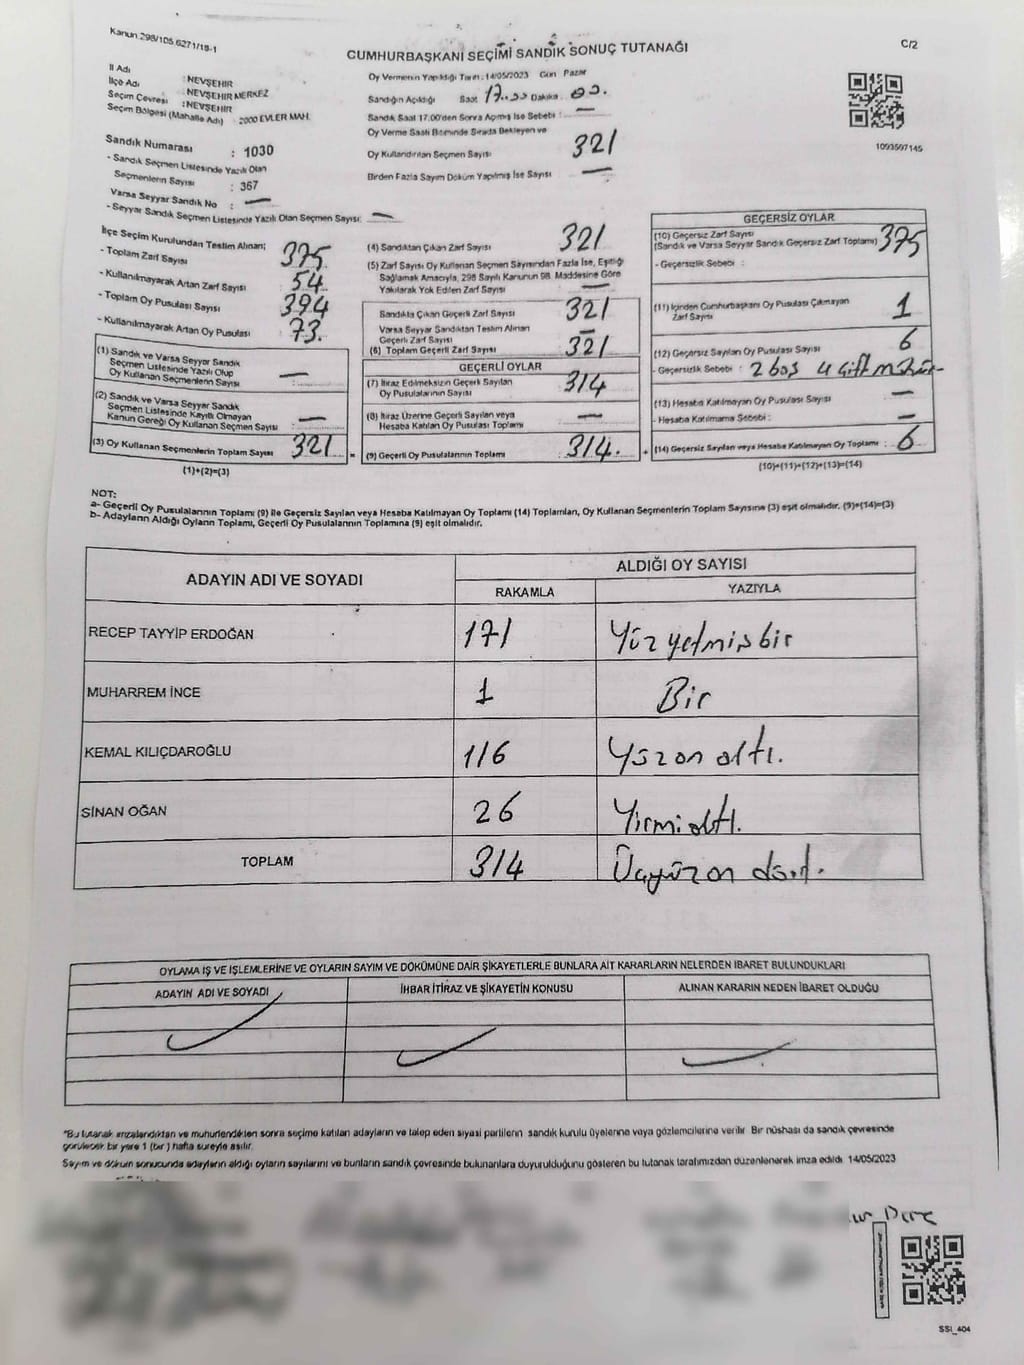 Kanun 298/105.6271/18-1
CUMHURBAŞKANI SEÇİMİ SANDIK SONUÇ TUTANAĞI
C/2
İl Adı : NEVŞEHİR
İlçe Adı : NEVŞEHİR MERKEZ
Seçim Çevresi : NEVŞEHİR
Seçim Bölgesi (Mahalle Adı) : 2000 EVLER MAH.
Sandık Numarası : 1030
- Sandık Seçmen Listesinde Yazılı Olan
Seçmenlerin Sayısı : 367
Varsa Seyyar Sandık No : —
- Seyyar Sandık Seçmen Listesinde Yazılı Olan Seçmen Sayısı: —
Oy Vermenin Yapıldığı Tarih : 14/05/2023 Gün Pazar
Sandığın Açıldığı Saat 17.00 Dakika 00.
Sandık Saat 17.00'den Sonra Açılmış İse Sebebi : —
Oy Verme Saati Bitiminde Sırada Bekleyen ve
Oy Kullandırılan Seçmen Sayısı 321
Birden Fazla Sayım Döküm Yapılmış İse Sayısı —
1093507145
İlçe Seçim Kurulundan Teslim Alınan;
- Toplam Zarf Sayısı 375
- Kullanılmayarak Artan Zarf Sayısı 54
- Toplam Oy Pusulası Sayısı 394
- Kullanılmayarak Artan Oy Pusulası 73.
(1) Sandık ve Varsa Seyyar Sandık
Seçmen Listesinde Yazılı Olup
Oy Kullanan Seçmenlerin Sayısı —
(2) Sandık ve Varsa Seyyar Sandık
Seçmen Listesinde Kayıtlı Olmayan
Kanun Gereği Oy Kullanan Seçmen Sayısı : —
(3) Oy Kullanan Seçmenlerin Toplam Sayısı 321 =
(1)+(2)=(3)
(4) Sandıktan Çıkan Zarf Sayısı 321
(5) Zarf Sayısı Oy Kullanan Seçmen Sayısından Fazla İse, Eşitliği
Sağlamak Amacıyla, 298 Sayılı Kanunun 98. Maddesine Göre
Yakılarak Yok Edilen Zarf Sayısı —
Sandıkta Çıkan Geçerli Zarf Sayısı 321
Varsa Seyyar Sandıktan Teslim Alınan
Geçerli Zarf Sayısı —
(6) Toplam Geçerli Zarf Sayısı 321
GEÇERLİ OYLAR
(7) İtiraz Edilmeksizin Geçerli Sayılan
Oy Pusulası Sayısı 314
(8) İtiraz Üzerine Geçerli Sayılan veya
Hesaba Katılan Oy Pusulası Toplamı —
(9) Geçerli Oy Pusulalarının Toplamı 314. +
GEÇERSİZ OYLAR
(10) Geçersiz Zarf Sayısı
(Sandık ve Varsa Seyyar Sandık Geçersiz Zarf Toplamı) 375
- Geçersizlik Sebebi :
(11) İçinden Cumhurbaşkanı Oy Pusulası Çıkmayan
Zarf Sayısı 1
(12) Geçersiz Sayılan Oy Pusulası Sayısı 6
- Geçersizlik Sebebi : 2 boş 4 çift mühür
(13) Hesaba Katılmayan Oy Pusulası Sayısı —
- Hesaba Katılmama Sebebi : —
(14) Geçersiz Sayılan veya Hesaba Katılmayan Oy Toplamı : 6
(10)+(11)+(12)+(13)=(14)
NOT:
a- Geçerli Oy Pusulalarının Toplamı (9) ile Geçersiz Sayılan veya Hesaba Katılmayan Oy Toplamı (14) Toplamları, Oy Kullanan Seçmenlerin Toplam Sayısına (3) eşit olmalıdır. (9)+(14)=(3)
b- Adayların Aldığı Oyların Toplamı, Geçerli Oy Pusulalarının Toplamına (9) eşit olmalıdır.
ADAYIN ADI VE SOYADI
ALDIĞI OY SAYISI
RAKAMLA YAZIYLA
RECEP TAYYİP ERDOĞAN 171 Yüz yetmiş bir
MUHARREM İNCE 1 Bir
KEMAL KILIÇDAROĞLU 116 Yüz on altı.
SİNAN OĞAN 26 Yirmi altı.
TOPLAM 314 Üçyüz on dört.
OYLAMA İŞ VE İŞLEMLERİNE VE OYLARIN SAYIM VE DÖKÜMÜNE DAİR ŞİKAYETLERLE BUNLARA AİT KARARLARIN NELERDEN İBARET BULUNDUKLARI
ADAYIN ADI VE SOYADI İHBAR İTİRAZ VE ŞİKAYETİN KONUSU ALINAN KARARIN NEDEN İBARET OLDUĞU
*Bu tutanak imzalandıktan ve mühürlendikten sonra seçime katılan adayların ve talep eden siyasi partilerin sandık kurulu üyelerine veya gözlemcilerine verilir. Bir nüshası da sandık çevresinde
görülecek bir yere 1 (bir) hafta süreyle asılır.
Sayım ve döküm sonucunda adayların aldığı oyların sayılarını ve bunların sandık çevresinde bulunanlara duyurulduğunu gösteren bu tutanak tarafımızdan düzenlenerek imza edildi. 14/05/2023
SSI_404